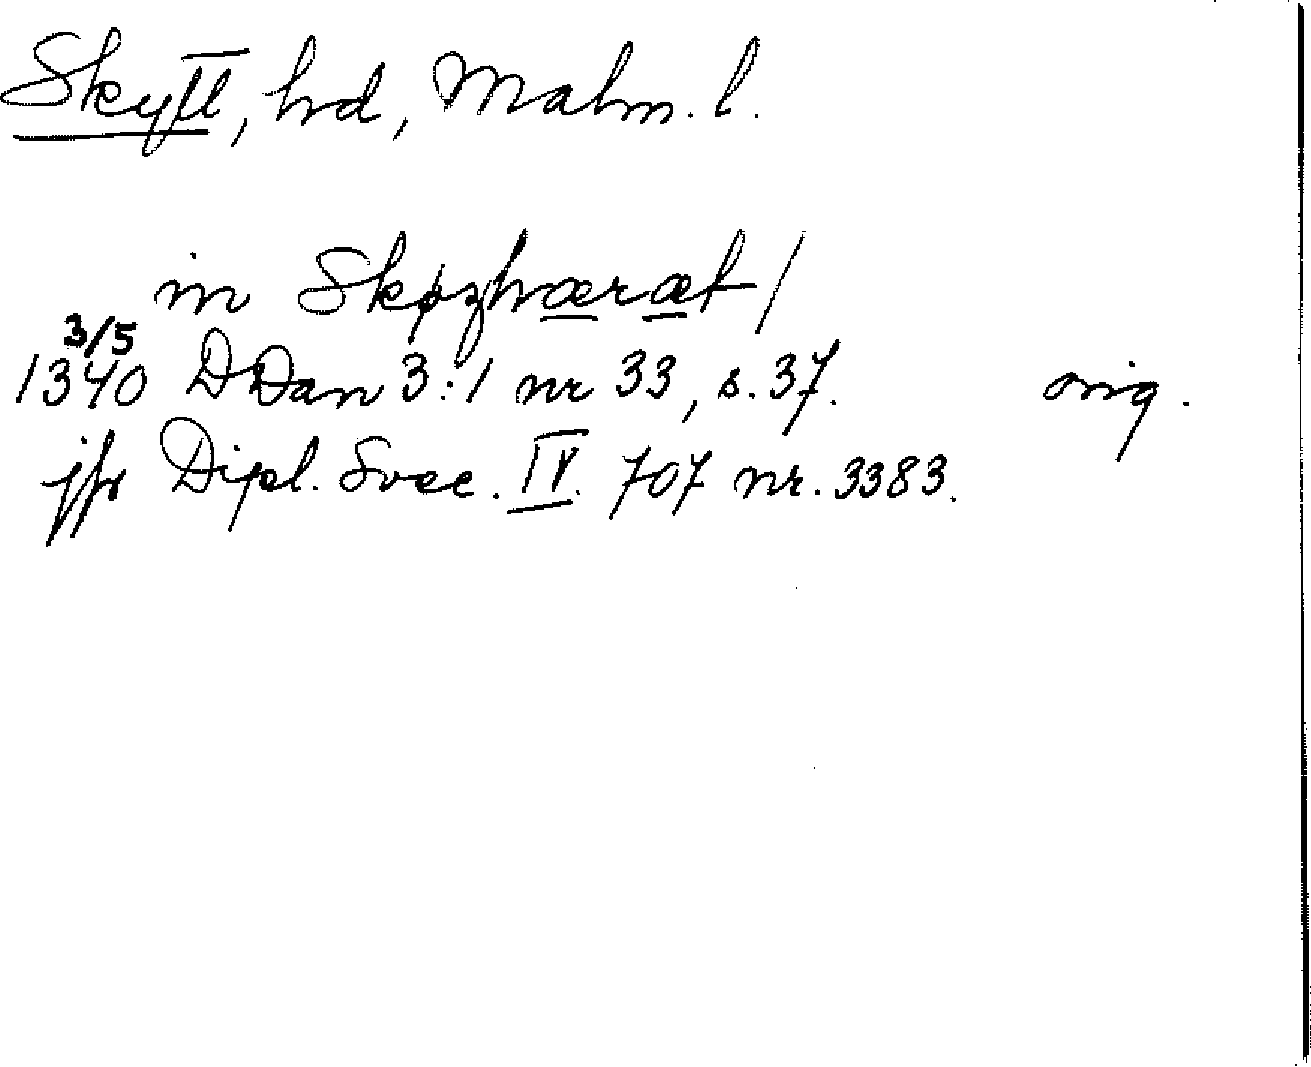 Skytt, hd, Malm. l.
in Skøzhæræt /
3/5
1340 DDan 3:1 nr 33, s. 37. orig.
jfr Dipl. Svec. IV. 707 nr. 3383.